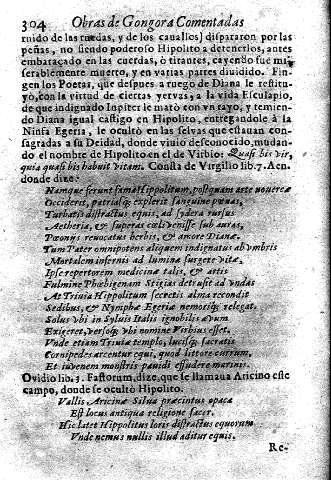 304 Obras de Gongora Comentadas
ruido de las ruedas, y de los cauallos) dispararon por las
peñas, no siendo poderoso Hipolito a detenerlos, antes
embaraçado en las cuerdas, ò tirantes, cayendo fue mi-
serablemente muerto, y en varias partes diuidido. Fin-
gen los Poetas, que despues a ruego de Diana le restitu-
yò, con la virtud de ciertas yervas, a la vida Esculapio,
de que indignado Iupiter le matò con vn rayo, y temien-
do Diana igual castigo en Hipolito, entregandole à la
Ninfa Egeria, le ocultò en las seluas que estauan con-
sagradas a su Deidad, donde viuio desconocido, mudan-
do el nombre de Hipolito en el de Virbio: Quasi bis vir,
quia quasi bis habuit vitam. Consta de Virgilio lib. 7. Aen.
donde dize:
Namque ferunt fama Hippolitum, postquam arte nouercæ
Occiderit, patriasq; explerit sanguine pœnas,
Turbatis distractus equis, ad sydera rursus
Aetheria, & superas cœli venisse sub auras,
Pæonijs reuocatus herbis, & amore Dianæ.
Tum Pater omnipotens aliquem indignatus ab vmbris
Mortalem infernis ad lumina surgere vitæ,
Ipse repertorem medicinæ talis, & artis
Fulmine Phæbigenam Stigias detrusit ad vndas
At Triuia Hippolitum secretis alma recondit
Sedibus, & Nymphæ Egeriæ nemorisq; relegat.
Solus vbi in Syluis Italis ignobilis æuum
Exigeret, versoq; vbi nomine Virbius esset.
Vnde etiam Triuiæ templo, lucisq; sacratis
Cornipedes arcentur equi, quod littore currum,
Et iuuenem monstris pauidi effudere marinis.
Ouidio lib. 3. Fastorum, dize, que se llamaua Aricino este
campo, donde se ocultò Hipolito.
Vallis Aricinæ Silua præcintus opaca
Est locus antiqua religione sacer.
Hic latet Hippolitus loris distractus equorum
Vnde nemus nullis illud aditur equis.
Re-